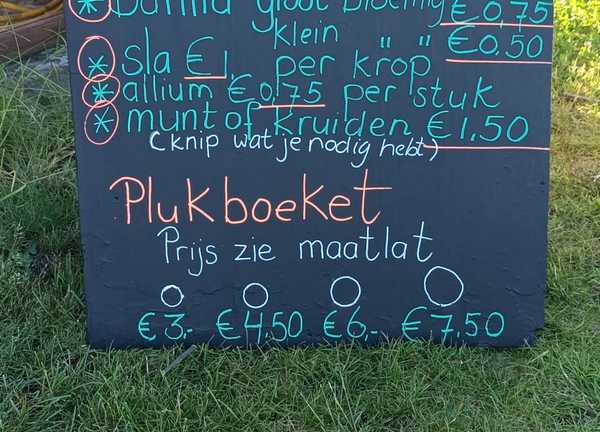 * Dahlia groot bloemig € 0,75
klein " " € 0.50
* sla € 1, per krop
* allium € 0.75 per stuk
* munt of kruiden € 1.50
(knip wat je nodig hebt)
Plukboeket
Prijs zie maatlat
€ 3,- € 4.50 € 6,- € 7.50